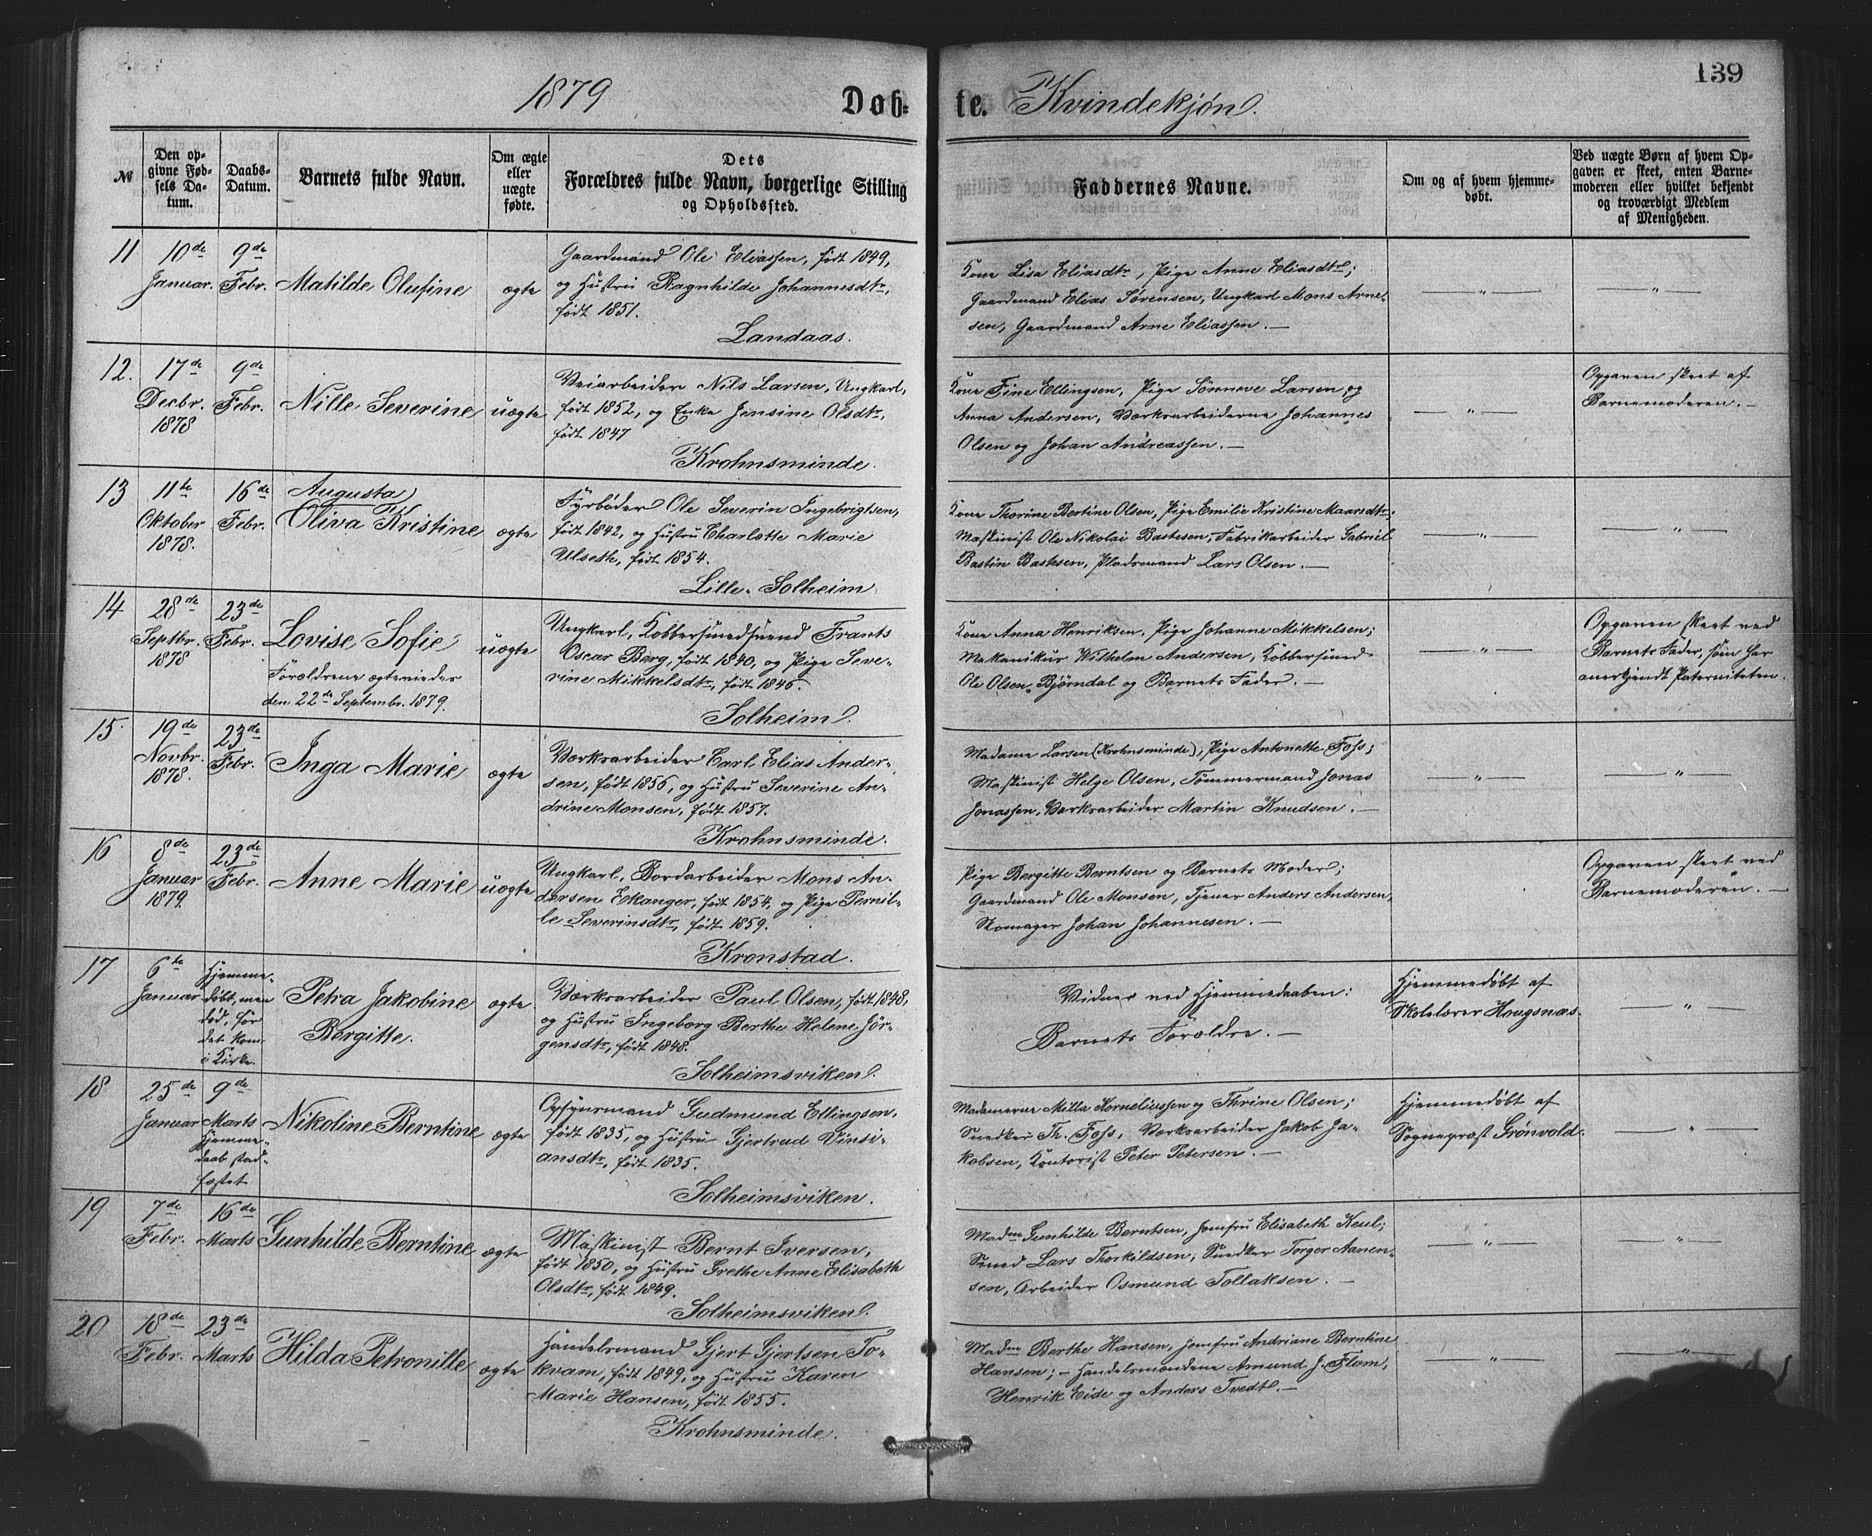 139
1879 Døb- te. Kvindekjøn.
№
Den opgivne Fødsels Datum.
Daabs-Datum.
Barnets fulde Navn.
Om ægte eller uægte fødte.
Dets Forældres fulde Navn, borgerlige Stilling og Opholdssted.
Faddernes Navne.
Om og af hvem hjemmedøbt.
Ved uægte Børn af hvem Opgaven er skeet, enten Barnemoderen eller hvilket bekjendt og troværdigt Medlem af Menigheden.
11
10de Januar.
9de Febr.
Matilde Olufine
ægte
Gaardmand Ole Eliassen, født 1849,
og Hustru Ragnhilde Johannesdtr,
født 1851.
Landaas.
Kone Lisa Eliasdtr, Pige Anne Eliasdtr;
Gaardmand Elias Sørensen, Ungkarl Mons Arne-
sen, Gaardmand Arne Eliassen. —
— " —
— " —
12.
17de Decbr. 1878
9de Febr.
Nille Severine
uægte
Veiarbeider Nils Larsen, Ungkarl,
født 1852, og Enke Jensine Olsdtr,
født 1847
Krohnsminde.
Kone Fine Ellingsen, Pige Sønneve Larsen og
Anna Andersen, Værksarbeiderne Johannes
Olsen og Johan Andreassen. —
— " —
Opgaven skeet af
Barnemoderen. —
13
11te Oktober 1878.
16de Febr.
Augusta
Oliva Kristine
ægte
Fyrbøder Ole Severin Ingebrigtsen,
født 1842, og Hustru Charlotte Marie
Ulseth, født 1854.
Lille-Solheim
Kone Thorine Bertine Olsen, Pige Emilie Kristine Maarsdtr;
Maskinist Ole Nikolai Bastesen, Fabrikarbeider Gabriel
Bastin Bastesen, Pladsmand Lars Olsen. —
— " —
— " —
14
28de Septbr. 1878
23de Febr.
Lovise Sofie
Forældrene ægteviede
den 22de Septembr. 1879.
uægte
Ungkarl, Kobbersmedsvend Frants
Oscar Berg, født 1840, og Pige Seve-
rine Mikkelsdtr, født 1845.
Solheim.
Kone Anna Henriksen, Pige Johanne Mikkelsen;
Mekanikus Wilhelm Andersen, Kobbersmed
Ole Olsen Bjørndal og Barnets Fader. —
— " —
Opgaven skeet ved
Barnets Fader, som har
anerkjendt Paterniteten.
15.
19de Novbr. 1878
23de Febr.
Inga Marie
ægte
Værksarbeider Carl Elias Ander-
sen, født 1856, og Hustru Severine An-
drine Monsen, født 1857.
Krohnsminde.
Madame Larsen (Krohnsminde), Pige Antonette Foss;
Maskinist Helge Olsen, Tømmermand Jonas
Jonassen, Værksarbeider Martin Knudsen. —
— " —
— " —
16
8de Januar 1879.
23de Febr.
Anne Marie
uægte
Ungkarl, Bordarbeider Mons An-
dersen Ekanger, født 1854, og Pige Pernil-
le Severinsdtr, født 1859.
Kronstad.
Pige Bergitte Berntsen og Barnets Moder;
Gaardmand Ole Monsen, Tjener Anders Andersen,
Skomager Johan Johannesen. —
Opgaven skeet ved
Barnemoderen. —
17
6te Januar
Hjemme-
døbt, men
død, før
det kom
i Kirke.
Petra Jakobine
Bergitte.
ægte
Værksarbeider Paul Olsen, født 1848,
og Hustru Ingeborg Berthe Helene Jør-
gensdtr, født 1848.
Solheimsviken.
Vidner ved Hjemmedaaben:
Barnets Forældre. —
Hjemmedøbt af
Skolelærer Hougsnæs.
— " —
18
25de Januar
9de Marts
Hjemme-
daab stad-
fæstet
Nikoline Berntine
ægte
Opsynsmand Gudmund Ellingsen,
født 1835, og Hustru Gjertrud Vinsi-
ansdtr, født 1835.
Solheimsviken.
Madamerne Milla Korneliussen og Thrine Olsen;
Snedker Th. Foss, Værksarbeider Jakob Ja-
kobsen, Kontorist Peter Petersen. —
Hjemmedøbt af
Sogneprest Grønvold.
— " —
19
7de Febr.
16de Marts
Gunhilde Berntine
ægte
Maskinist Bernt Iversen,
født 1850, og Hustru Grethe Anne Elisabeth
Olsdtr, født 1849.
Solheimsviken.
Madme Gunhilde Berntsen, Jomfru Elisabeth Keul;
Smed Lars Thorkildsen, Snedker Torger Aanen-
sen, Arbeider Osmund Tollaksen. —
— " —
— " —
20
18de Febr.
23de Marts
Hilda Petronille
ægte
Handelsmand Gjert Gjertsen To-
kvam, født 1849, og Hustru Karen
Marie Hansen, født 1855.
Krohnsminde.
Madme Berthe Hansen, Jomfru Andriane Berntine
Hansen; — Handelsmændene Amund J. Flam,
Henrik Eide og Anders Tvedt. —
— " —
— " —